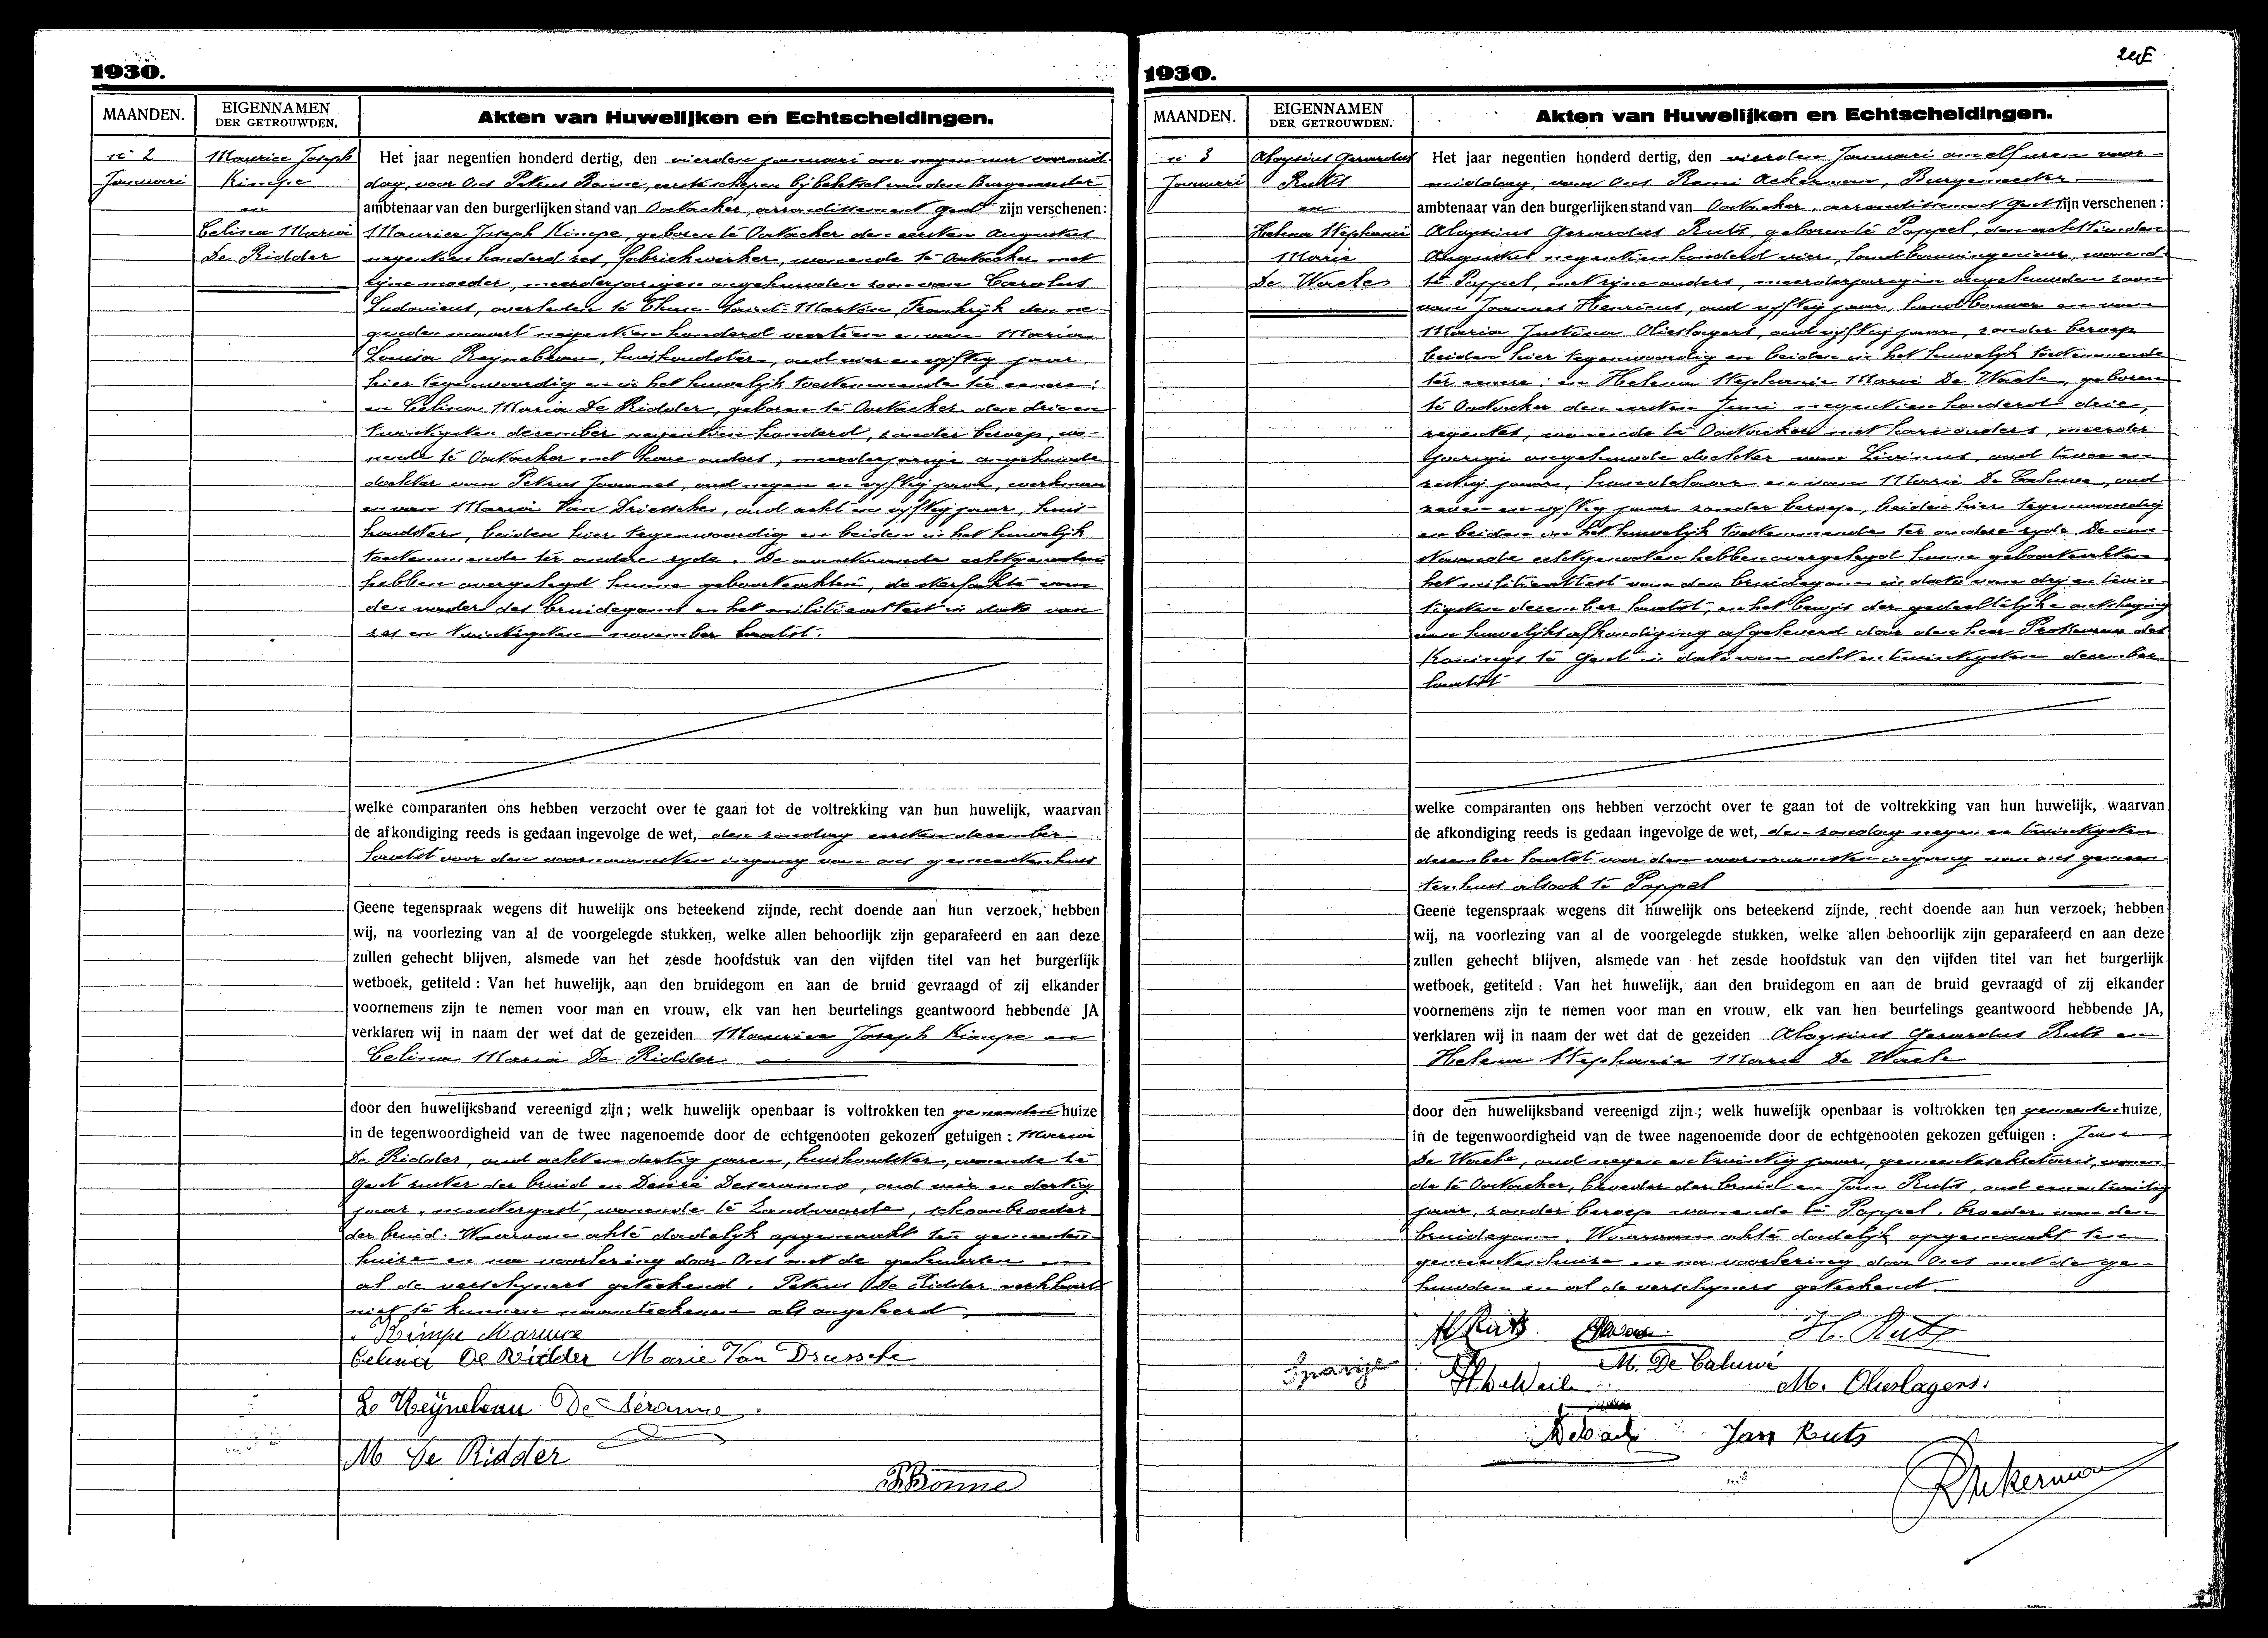 1930.
MAANDEN.
EIGENNAMEN
DER GETROUWDEN.
Akten van Huwelijken en Echtscheidingen.
n° 2
Januari
Maurice Joseph
Kimpe
en
Celina Maria
De Ridder
Het jaar negentien honderd dertig, den vierden januari om negen uur voormid-
dag, voor Ons Petrus Bonne, eerste schepen bij beletsel van den Burgemeester
ambtenaar van den burgerlijken stand van Oostacker, arrondissement Gent zijn verschenen:
Maurice Joseph Kimpe, geboren te Oostacker den eersten Augustus
negentien honderd zes, fabriekwerker, wonende te Oostacker met
zijne moeder, meerderjarigen ongehuwden zoon van Carolus
Ludovicus, overleden te Saint-Martin, Frankrijk den ne-
genden maart negentien honderd veertien en van Maria
Louisa Reynebeau, huishoudster, oud vier en vijftig jaar
hier tegenwoordig en in het huwelijk toestemmende ter eenre;
en Celina Maria De Ridder, geboren te Oostacker den drie en
twintigsten december negentien honderd, zonder beroep, wo-
nende te Oostacker met hare ouders, meerderjarige ongehuwde
dochter van Petrus Joannes, oud negen en vijftig jaar, werkman
en van Maria Van Driessche, oud acht en vijftig jaar, huis-
houdster, beiden hier tegenwoordig en beiden in het huwelijk
toestemmende ter andere zyde. De aanstaande echtgenoten
hebben overgelegd hunne geboorteakten, de sterfakte van
den vader des bruidegoms en het militieattest in date van
zes en twintigsten november laatst.
welke comparanten ons hebben verzocht over te gaan tot de voltrekking van hun huwelijk, waarvan
de afkondiging reeds is gedaan ingevolge de wet, den zondag eersten december
laatst voor den voornaamsten ingang van ons gemeentenhuis
Geene tegenspraak wegens dit huwelijk ons beteekend zijnde, recht doende aan hun verzoek, hebben
wij, na voorlezing van al de voorgelegde stukken, welke allen behoorlijk zijn geparafeerd en aan deze
zullen gehecht blijven, alsmede van het zesde hoofdstuk van den vijfden titel van het burgerlijk
wetboek, getiteld : Van het huwelijk, aan den bruidegom en aan de bruid gevraagd of zij elkander
voornemens zijn te nemen voor man en vrouw, elk van hen beurtelings geantwoord hebbende JA
verklaren wij in naam der wet dat de gezeiden Maurice Joseph Kimpe en
Celina Maria De Ridder
door den huwelijksband vereenigd zijn ; welk huwelijk openbaar is voltrokken ten gemeentenhuize
in de tegenwoordigheid van de twee nagenoemde door de echtgenooten gekozen getuigen : Maria
De Ridder, oud acht en dertig jaren, huishoudster, wonende te
Gent zuster der bruid en Désiré Deseranno, oud vier en dertig
jaar, meestergast, wonende te Zandvoorde, schoonbroeder
der bruid. Waarvan akte dadelijk opgemaakt ten gemeenten-
huize en na voorlezing door Ons met de gehuwden en
al de verschyners geteekend. Petrus De Ridder verklaart
niet te kunnen naamteekenen als ongeleerd.
Kimpe Maurice
Celina De Ridder Marie Van Driessche
L. Reynebeau De Séranne
M De Ridder
PBonne
1930.
MAANDEN.
EIGENNAMEN
DER GETROUWDEN.
Akten van Huwelijken en Echtscheidingen.
n° 3
Januari
Aloysius Gerardus
Ruts
en
Helena Stephanie
Marie
De Waele
Het jaar negentien honderd dertig, den vierden Januari om elf uren voor-
middag, voor Ons Remi Ackerman, Burgemeester
ambtenaar van den burgerlijken stand van Oostacker, arrondissement Gent zijn verschenen :
Aloysius Gerardus Ruts, geboren te Poppel, den achttienden
Augustus negentien honderd vier, landbouwingenieur, wonend
te Poppel, met zijne ouders, meerderjarigen ongehuwden zoon
van Joannes Henricus, oud vijftig jaar, landbouwer en van
Maria Justina Olieslagers, oud vijftig jaar, zonder beroep
beiden hier tegenwoordig en beiden in het huwelijk toestemmende
ter eenre; en Helena Stephanie Marie De Waele, geboren
te Oostacker den eersten Juni negentien honderd drie,
regentes, wonende te Oostacker met hare ouders, meerder
jarige ongehuwde dochter van Livinus, oud twee en
zestig jaar, handelaar en van Marie De Caluwe, oud
zeven en vijftig jaar zonder beroep, beiden hier tegenwoordig
en beiden in het huwelijk toestemmende ter andere zyde. De aan-
staande echtgenooten hebben overgelegd hunne geboorteakten
het militieattest van den bruidegom in date van dry en twin-
tigsten december laatst, en het bewijs der gedeeltelijke ontslaging
van huwelijksafkondiging afgeleverd door den heer Prokureur des
Konings te Gent in date van acht en twintigsten december
laatst
welke comparanten ons hebben verzocht over te gaan tot de voltrekking van hun huwelijk, waarvan
de afkondiging reeds is gedaan ingevolge de wet, den zondag negen en twintigsten
december laatst voor den voornaamsten ingang van ons gemeen-
tenhuis alsook te Poppel
Geene tegenspraak wegens dit huwelijk ons beteekend zijnde, recht doende aan hun verzoek, hebben
wij, na voorlezing van al de voorgelegde stukken, welke allen behoorlijk zijn geparafeerd en aan deze
zullen gehecht blijven, alsmede van het zesde hoofdstuk van den vijfden titel van het burgerlijk
wetboek, getiteld : Van het huwelijk, aan den bruidegom en aan de bruid gevraagd of zij elkander
voornemens zijn te nemen voor man en vrouw, elk van hen beurtelings geantwoord hebbende JA,
verklaren wij in naam der wet dat de gezeiden Aloysius Gerardus Ruts en
Helena Stephanie Marie De Waele
door den huwelijksband vereenigd zijn ; welk huwelijk openbaar is voltrokken ten gemeentenhuize,
in de tegenwoordigheid van de twee nagenoemde door de echtgenooten gekozen getuigen : Jan
De Waele, oud negen en twintig jaar, gemeentesekretaris, wonen-
de te Oostacker, broeder der bruid en Jan Ruts, oud een en twintig
jaar, zonder beroep wonende te Poppel, broeder van den
bruidegom. Waarvan akte dadelijk opgemaakt ten
gemeentenhuize en na voorlezing door Ons met de ge-
huwden en al de verschyners geteekend
Al Ruts H. Ruts
M. De Caluwé
M. Olieslagers.
Jan Ruts
RAckerman